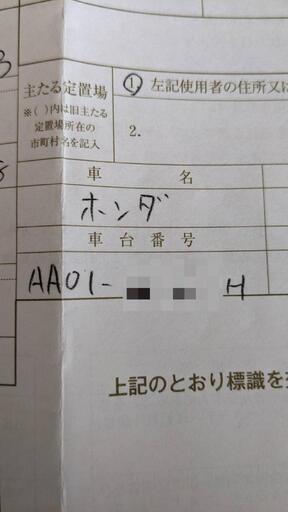 3
主たる定置場
※( )内は旧主たる
定置場所在の
市町村名を記入
① 左記使用者の住所又は
2.
8
車 名
ホンダ
車台番号
AA01- H
上記のとおり標識を